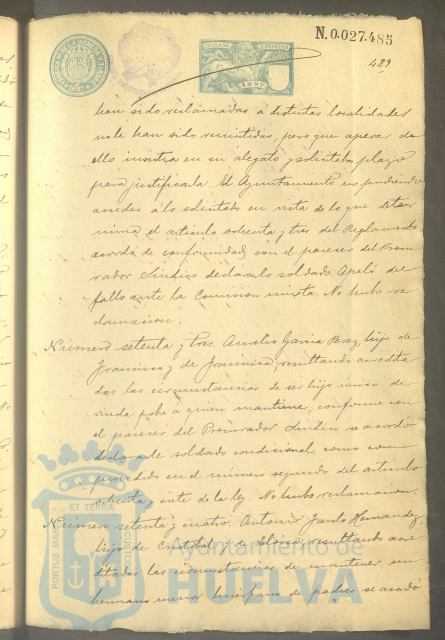 N. 0.027.485
429
han sido reclamadas a distintas localidades
no le han sido remitidas, pero que apesar de
ello insistia en su alegato y solicitaba plazo
para justificarla. El Ayuntamiento no pudiendo
acceder á lo solicitado en vista de lo que deter
mina el artículo ochenta y tres del Reglamento
acordó de conformidad con el parecer del Procu
rador Síndico declararlo soldado. Apeló del
fallo ante la Comision mixta. No hubo re
clamacion.
Número setenta y tres. Aurelio Garcia Perez, hijo de
Francisco y de Francisca, resultando acredita
das las circunstancias de ser hijo único de
viuda pobre a quien mantiene, conforme con
el parecer del Procurador Síndico se acordó
declararle soldado condicional como com
prendido en el número segundo del artículo
ochenta y siete de la ley. No hubo reclamacion.
Número setenta y cuatro. Antonio Hernandez,
hijo de Cristobal y de Eloisa, resultando acre
ditadas las circunstancias de mantener un
hermano menor huérfano de padres se acordó
PORTUS MARIS ET TERRAE CUSTODIA
Ayuntamiento de
HUELVA